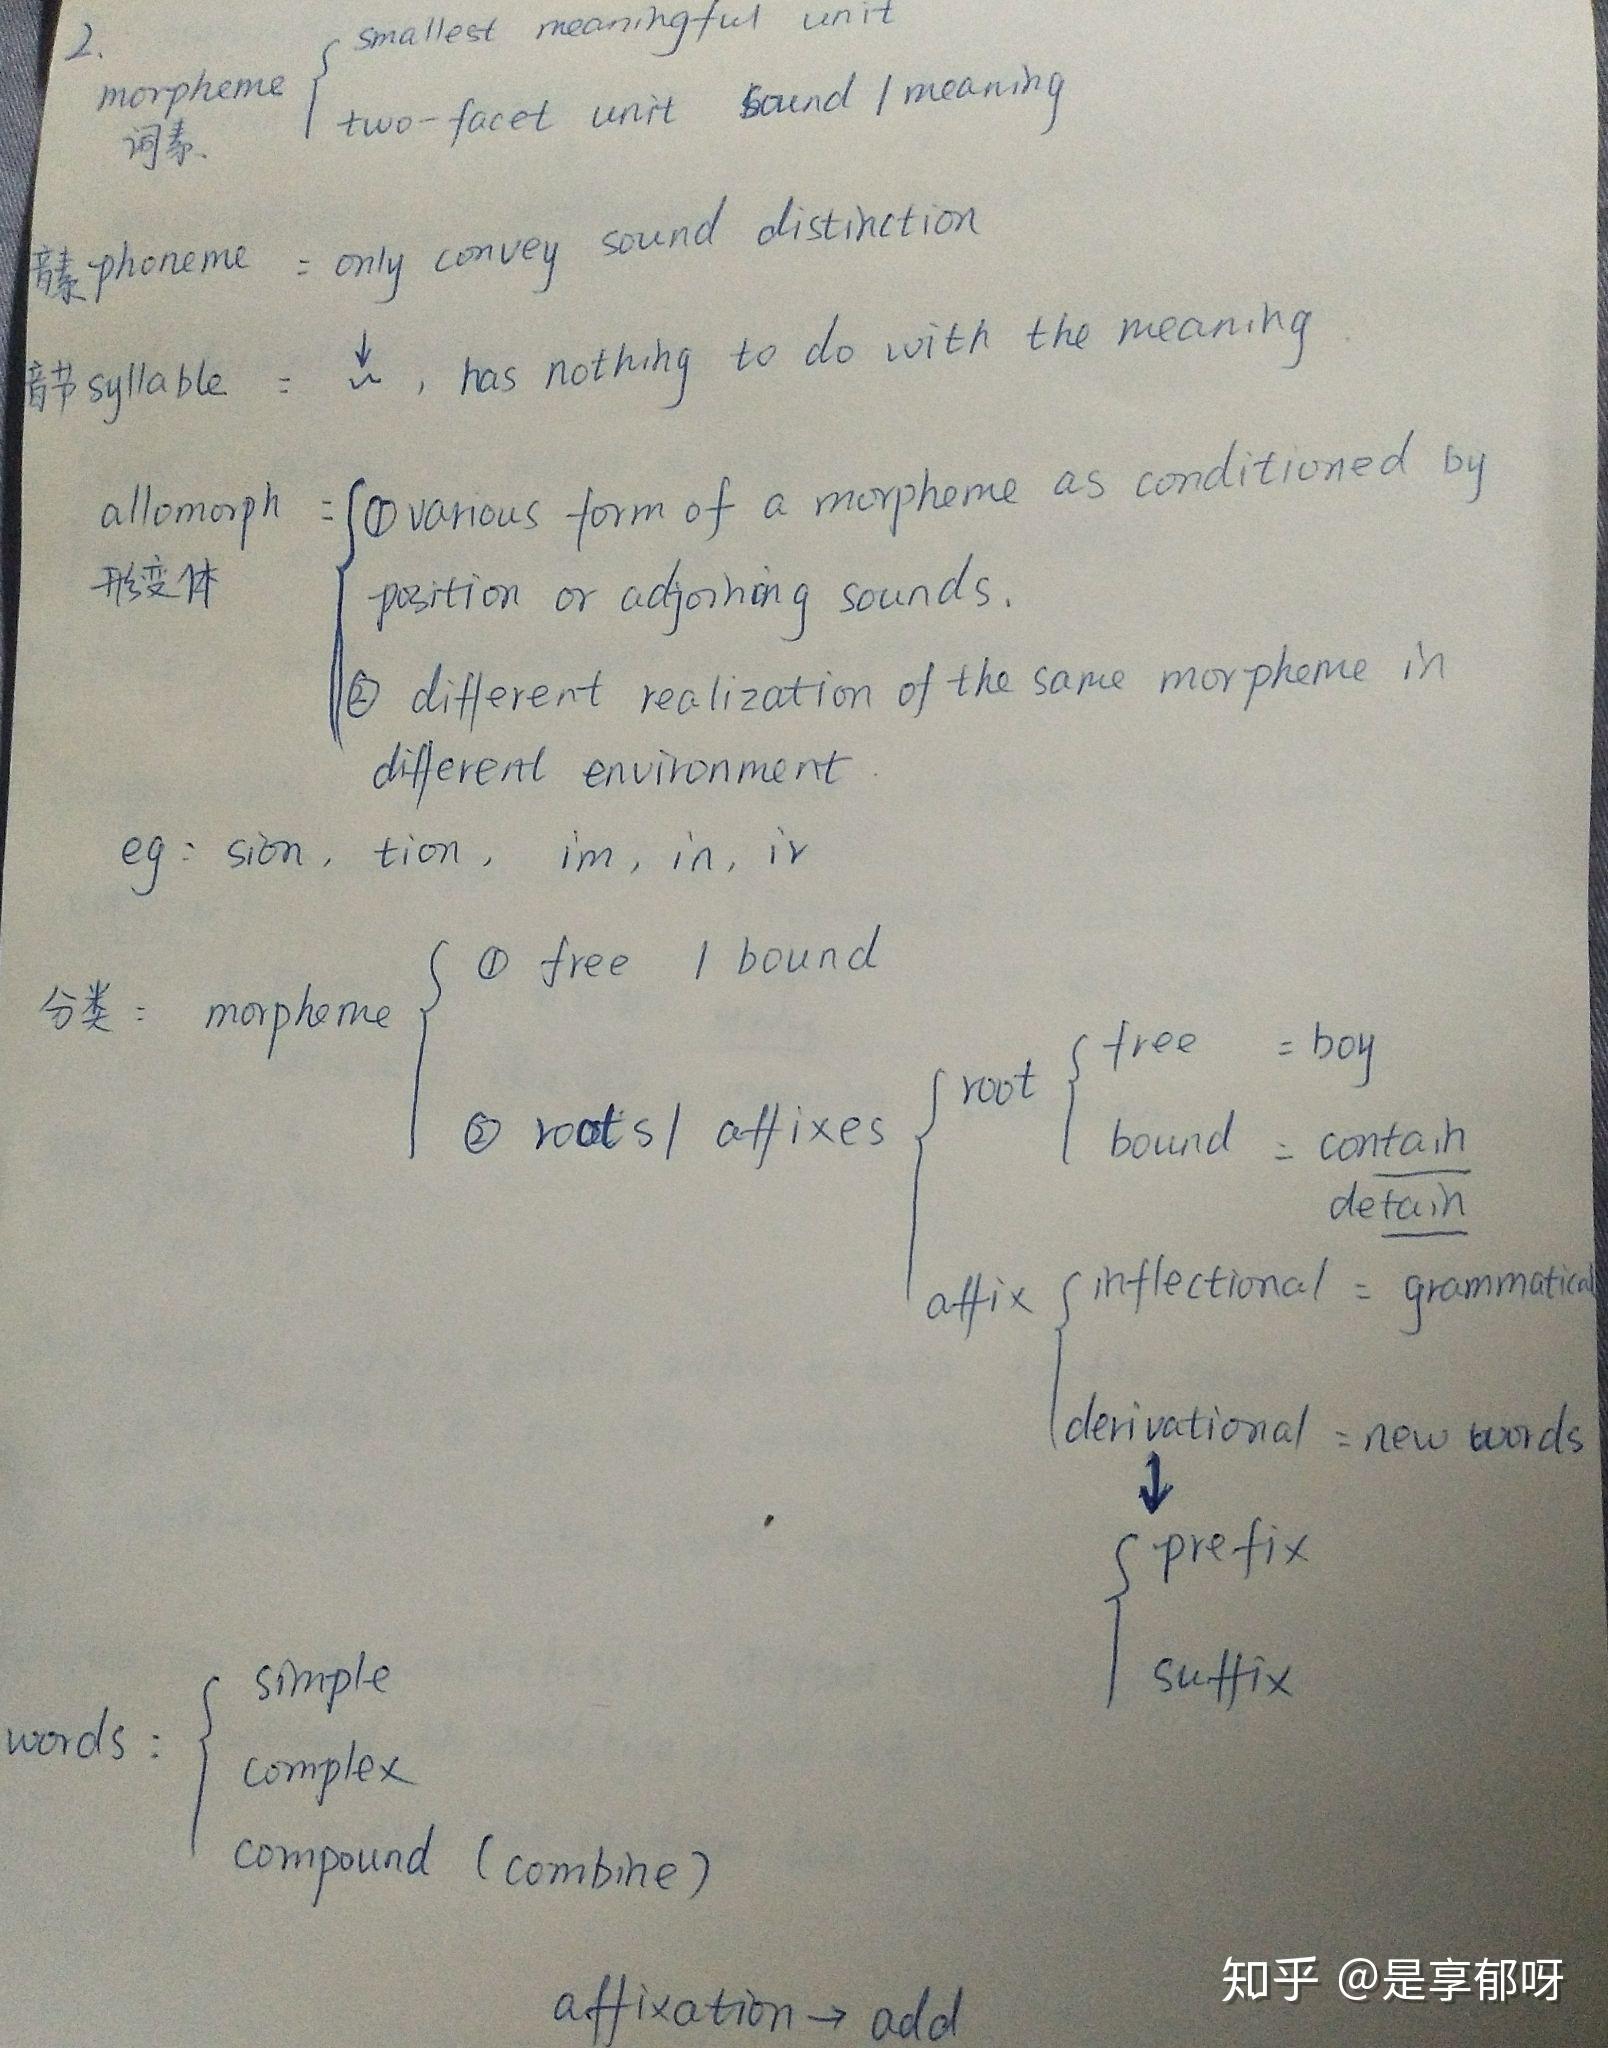 2.
smallest meaningful unit
morpheme
two-facet unit sound / meaning
词素.
音素 phoneme = only convey sound distinction
音节 syllable = ↓ 〃, has nothing to do with the meaning
allomorph = ① various form of a morpheme as conditioned by
形变体
position or adjoining sounds.
② different realization of the same morpheme in
different environment.
eg: sion, tion, im, in, ir
① free / bound
分类: morpheme
free = boy
root
② roots / affixes
bound = contain
detain
affix inflectional = grammatical
derivational = new words
↓
prefix
suffix
simple
words:
complex
compound (combine)
affixation → add
知乎 @是享郁呀